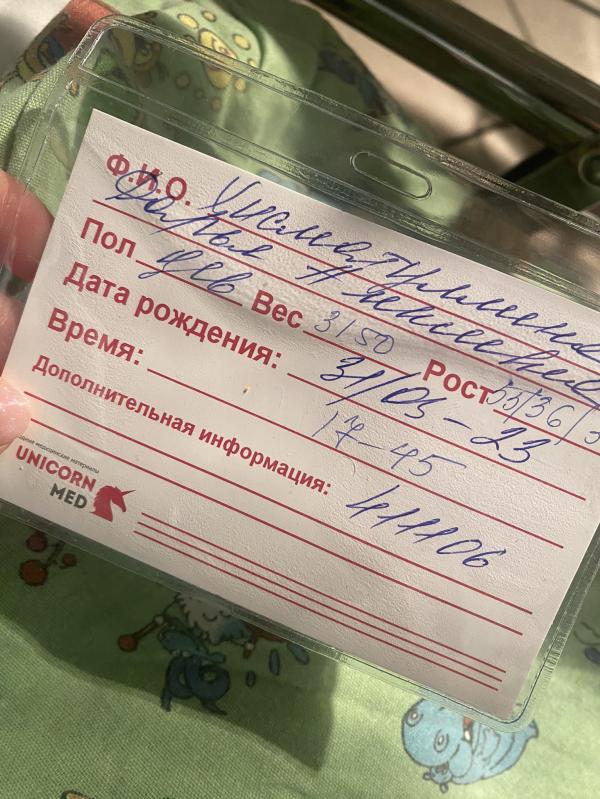 Ф.И.О.
Дарья Алексеевна
Пол дев Вес 3150 Рост 53/36/3
Дата рождения: 31/05-23
Время: 17-45
Дополнительная информация: 411106
медицинские материалы
UNICORN
MED